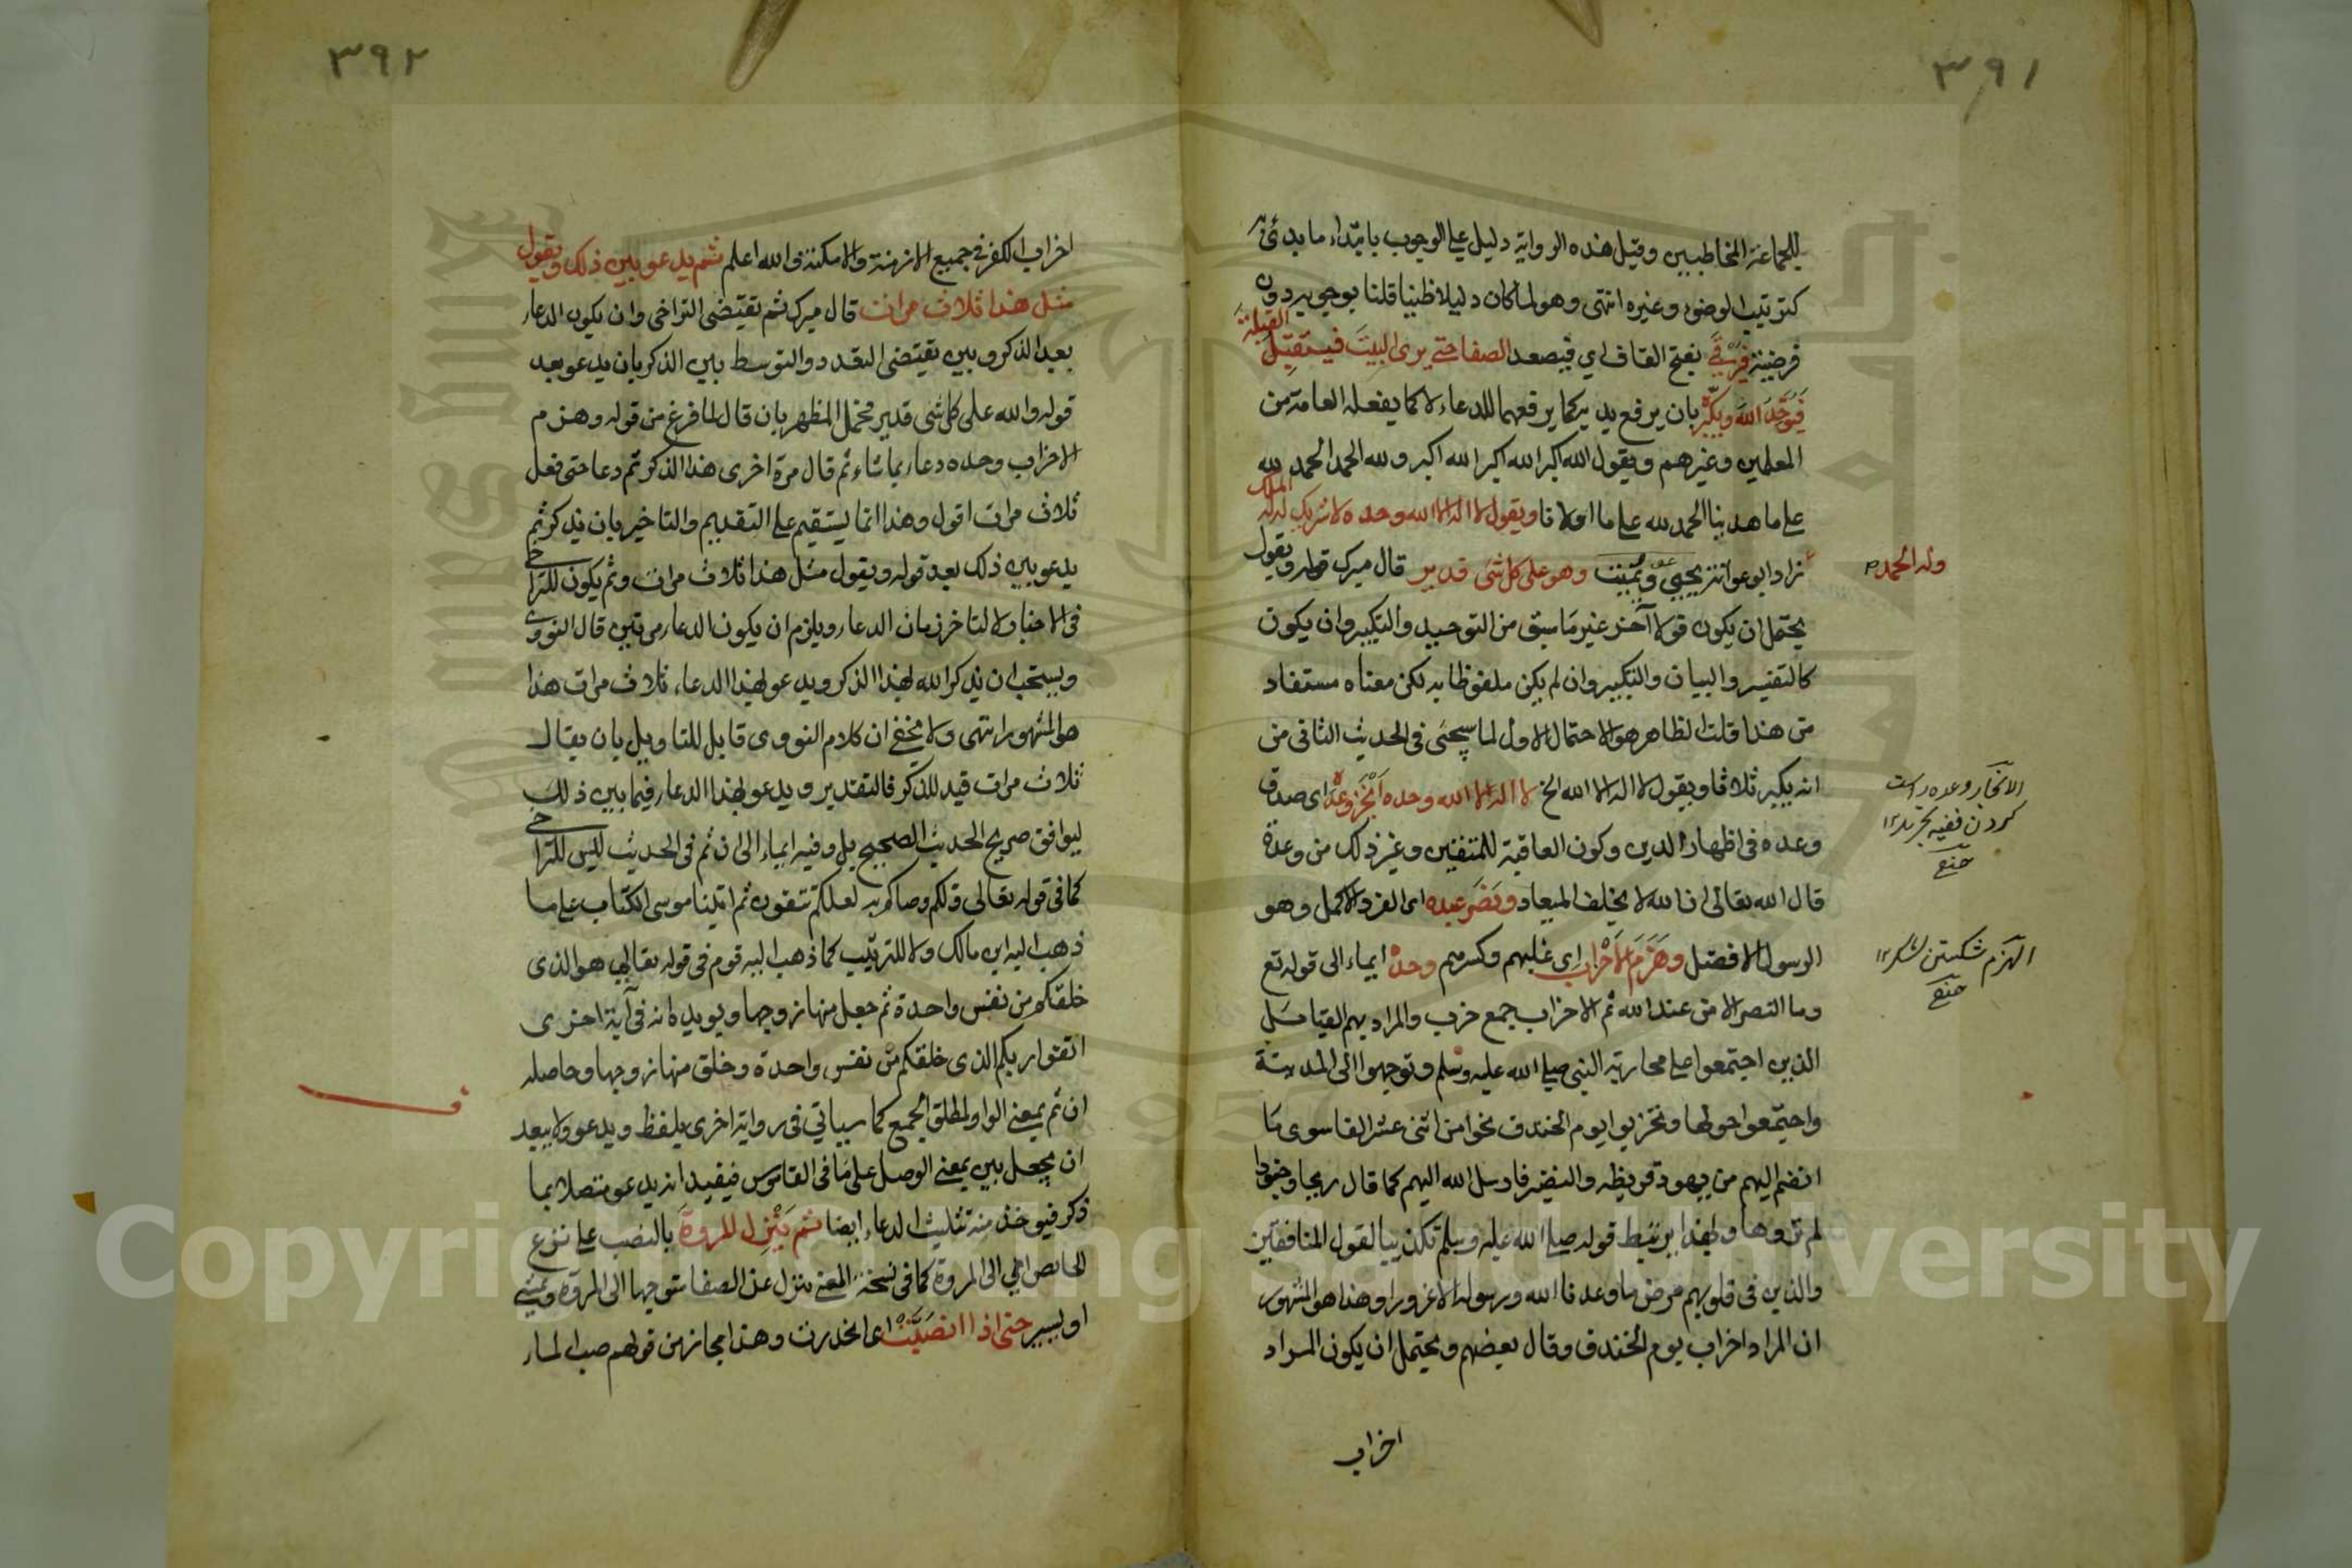 ٣٩١
للجماعة المخاطبين وقيل هذه الرواية دليل على الوجوب بابتداء ما بدئ به
كترتيب الوضوء وغيره انتهى وهو لما كان دليلا ظنيا قلنا بوجوبه دون
فرضيته فيرقى بفتح القاف اي فيصعد الصفا حتى يرى البيت فيستقبل القبلة
فيوحد الله ويكبره بان يرفع يديه كما يرفعهما للدعاء لا كما يفعله العامة من
المعلمين وغيرهم ويقول الله اكبر الله اكبر الله اكبر ولله الحمد الحمد لله
على ما هدينا الحمد لله على ما اولانا ويقول لا اله الا الله وحده لا شريك له له الملك
وله الحمد
زاد ابو عوانة يحيي ويميت وهو على كل شئ قدير قال ميرك قوله ويقول
يحتمل ان يكون قولا آخر غير ما سبق من التوحيد والتكبير وان يكون
كالتفسير والبيان والتكبير وان لم يكن ملفوظا به لكن معناه مستفاد
من هذا قلت الظاهر هو الاحتمال الاول لما سيجئ في الحديث الثاني من
انه يكبر ثلاثا ويقول لا اله الا الله الخ لا اله الا الله وحده انجز وعده اي صدق
الانجاز وعده راست
كردن
وعده في اظهار الدين وكون العاقبة للمتقين وغير ذلك من وعده
قال الله تعالى ان الله لا يخلف الميعاد ونصر عبده اي الفرد الاكمل وهو
الرسول الافضل وهزم الاحزاب اي غلبهم وكسرهم وحده ايماء الى قوله تع
الهزم شكستن لشكر ١٢
وما النصر الا من عند الله ثم الاحزاب جمع حزب والمراد بهم القبائل
الذين اجتمعوا على محاربة النبي صلى الله عليه وسلم وتوجهوا الى المدينة
واجتمعوا حولها وتحزبوا يوم الخندق نحوا من اثنى عشر الفا سوى ما
انضم اليهم من يهود قريظة والنضير فارسل الله اليهم كما قال ريحا وجنودا
لم تروها وبهذا يرتبط قوله صلى الله عليه وسلم تكذيبا لقول المنافقين
والذين في قلوبهم مرض ما وعدنا الله ورسوله الا غرورا وهذا هو المشهور
ان المراد احزاب يوم الخندق وقال بعضهم ويحتمل ان يكون المراد
احزاب
٣٩٢
احزاب الكفر في جميع الازمنة والامكنة والله اعلم ثم يدعو بين ذلك ويقول
مثل هذا ثلاث مرات قال ميرك ثم تقتضي التراخي وان يكون الدعاء
بعد الذكر وبين تقتضي التعدد والتوسط بين الذكر بان يدعو بعد
قوله والله على كل شئ قدير فحمل المظهر بان قال لما فرغ من قوله وهزم
الاحزاب وحده دعاء بما شاء ثم قال مرة اخرى هذا الذكر ثم دعا حتى فعل
ثلاث مرات اقول وهذا انما يستقيم على التقديم والتاخير بان يذكر ثم
يدعو بين ذلك بعد قوله ويقول مثل هذا ثلاث مرات وثم يكون للتراخي
في الاخبار لا لتاخر زمان الدعاء ويلزم ان يكون الدعاء مرتين قال النووي
ويستحب ان يذكر الله بهذا الذكر ويدعو بهذا الدعاء ثلاث مرات هذا
هو المشهور انتهى ولا يخفى ان كلام النووي قابل للتاويل بان يقال
ثلاث مرات قيد للذكر فالتقدير ويدعو بهذا الدعاء فيما بين ذلك
ليوافق صريح الحديث الصحيح بل وفيه ايماء الى ان ثم في الحديث ليس للتراخي
كما في قوله تعالى ذلكم وصاكم به لعلكم تتقون ثم اتينا موسى الكتاب على ما
ذهب اليه ابن مالك ولا للترتيب كما ذهب اليه قوم في قوله تعالى هو الذي
خلقكم من نفس واحدة ثم جعل منها زوجها ويؤيده انه في آية اخرى
اتقوا ربكم الذي خلقكم من نفس واحدة وخلق منها زوجها وحاصله
ان ثم بمعنى الواو لمطلق الجمع كما سياتي في رواية اخرى بلفظ ويدعو ولا يبعد
ان يجعل بين بمعنى الوصل على ما في القاموس فيفيد انه يدعو متصلا بما
ذكر فيوخذ منه تثليث الدعاء ايضا ثم ينزل للمروة بالنصب على نزع
الخافض اي الى المروة كما في نسخة المعنى ينزل عن الصفا متوجها الى المروة ويمشي
او يسير حتى اذا انصبت اي انحدرت وهذا مجاز من قولهم صب الماء
Copyright © King Saud University